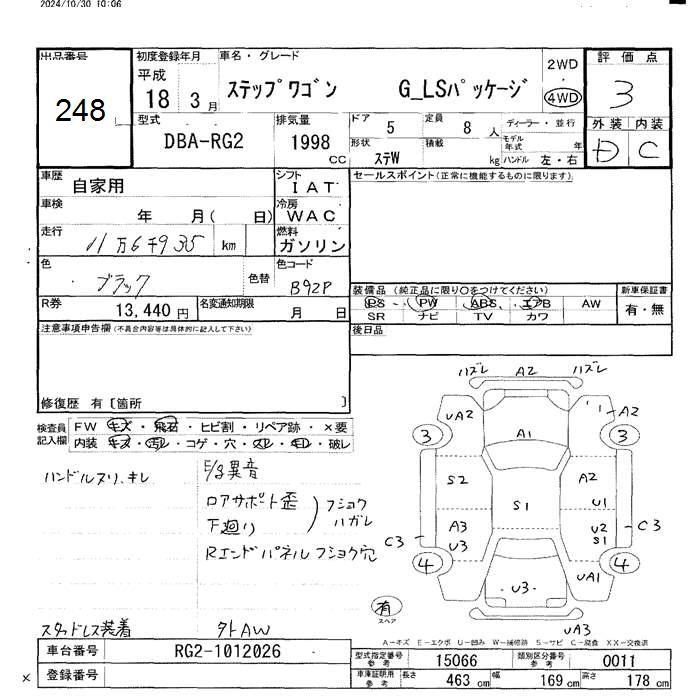 2024/10/30 10:06
出品番号
248
初度登録年月
平成
18 3月
車名・グレード
ステップワゴン G_LSパッケージ
2WD
4WD
評価点
3
外装 内装
D C
型式
DBA-RG2
排気量
1998
CC
ドア
5
定員
8人
形状
ステW
積載
kg
ディーラー・並行
モデル年式
年
ハンドル 左・右
車歴
自家用
シフト
IAT
セールスポイント(正常に機能するものに限ります)
車検
年 月( 日)
冷房
WAC
走行
11万6千935 km
燃料
ガソリン
色
ブラック
色替
色コード
B92P
装備品 (純正品に限り○をつけてください)
PS PW ABS エアB AW
SR ナビ TV カワ
新車保証書
有・無
R券
13,440円
名変通知期限
月 日
後日品
注意事項申告欄(不具合内容等は具体的に記入して下さい)
修復歴 有〔箇所 〕
検査員記入欄
FW キズ・飛石・ヒビ割・リペア跡・×要
内装 キズ・汚レ・コゲ・穴・スレ・キレ・破レ
ハンドルスリ、キレ
E/g異音
ロアサポート歪
下廻り
フショク
ハガレ
Rエンドパネルフショク穴
スタッドレス装着
外AW
ハズレ A2 ハズレ
UA2 A2
3 A1 3
S2 A2
S1 U1
A3 U2
U3 S1
C3 C3
4 4
U3 UA1
有
スペア
UA3
A-キズ E-エクボ U-凹み W-補修跡 S-サビ C-腐食 XX-交換済
車台番号
RG2-1012026
型式指定番号
参考
15066
類別区分番号
参考
0011
×
登録番号
車庫証明用
参考
長さ
463 cm
幅
169 cm
高さ
178 cm